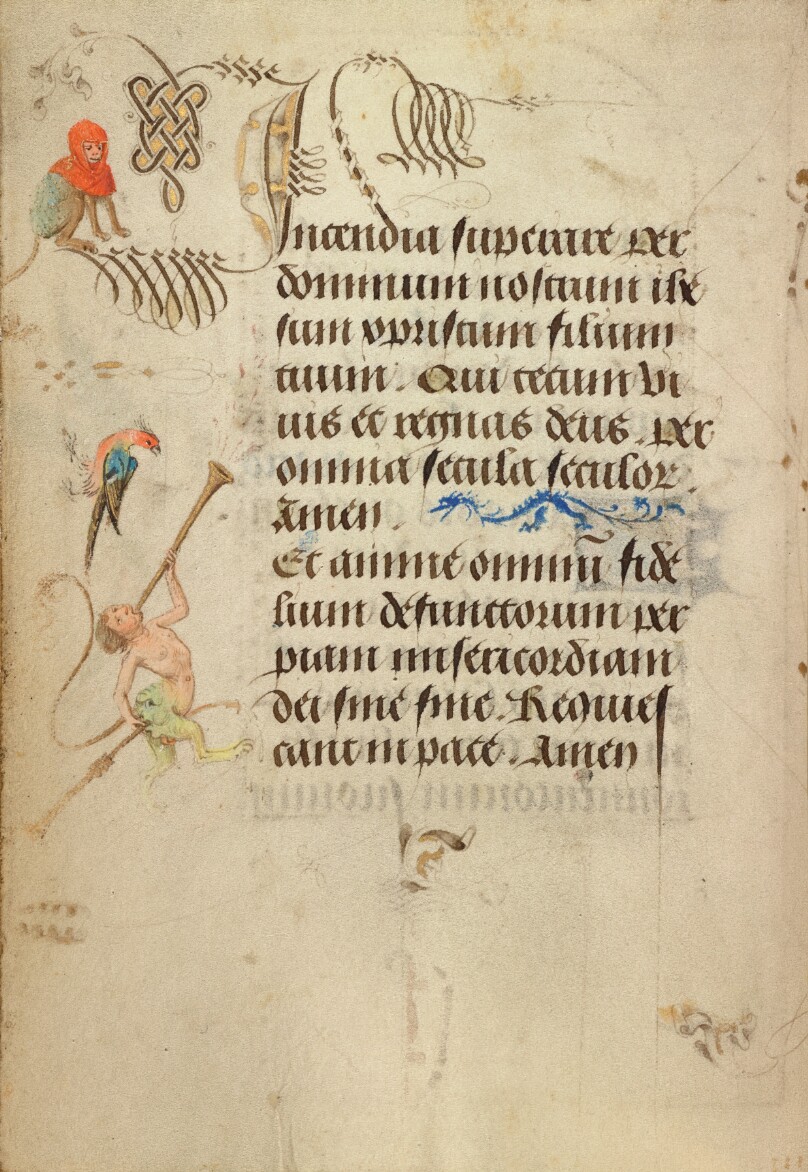 Incendia superare per
dominum nostrum ihe
sum xpristum filium
tuum. Qui tecum vi
uis et regnas deus. per
omnia secula seculor.
Amen.
Et anime omniū fide
lium defunctorum per
piam misericordiam
dei sine fine. Requies
cant in pace. Amen